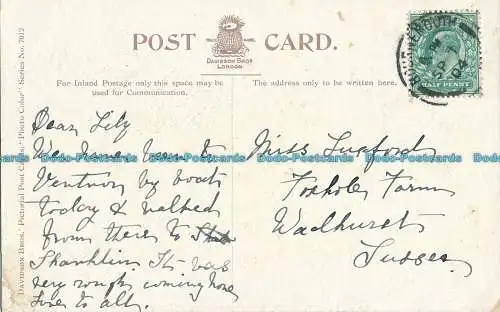 POST CARD.
DAVIDSON BROS
LONDON
For Inland Postage only this space may be used for Communication.
The address only to be written here.
HALF PENNY
SP
04
Dear Lily
We have been to
Ventnor by boat
today & walked
from there to
Shanklin. It was
very rough coming home
Love to all.
Miss Luxford
Foxhole Farm
Wadhurst
Sussex
DAVIDSON BROS.' Pictorial Post Cards. "Photo Color" Series No. 7012
Dodo-Postcards Dodo-Postcards Dodo-Postcards Dodo-Postcards Dodo-Postcards